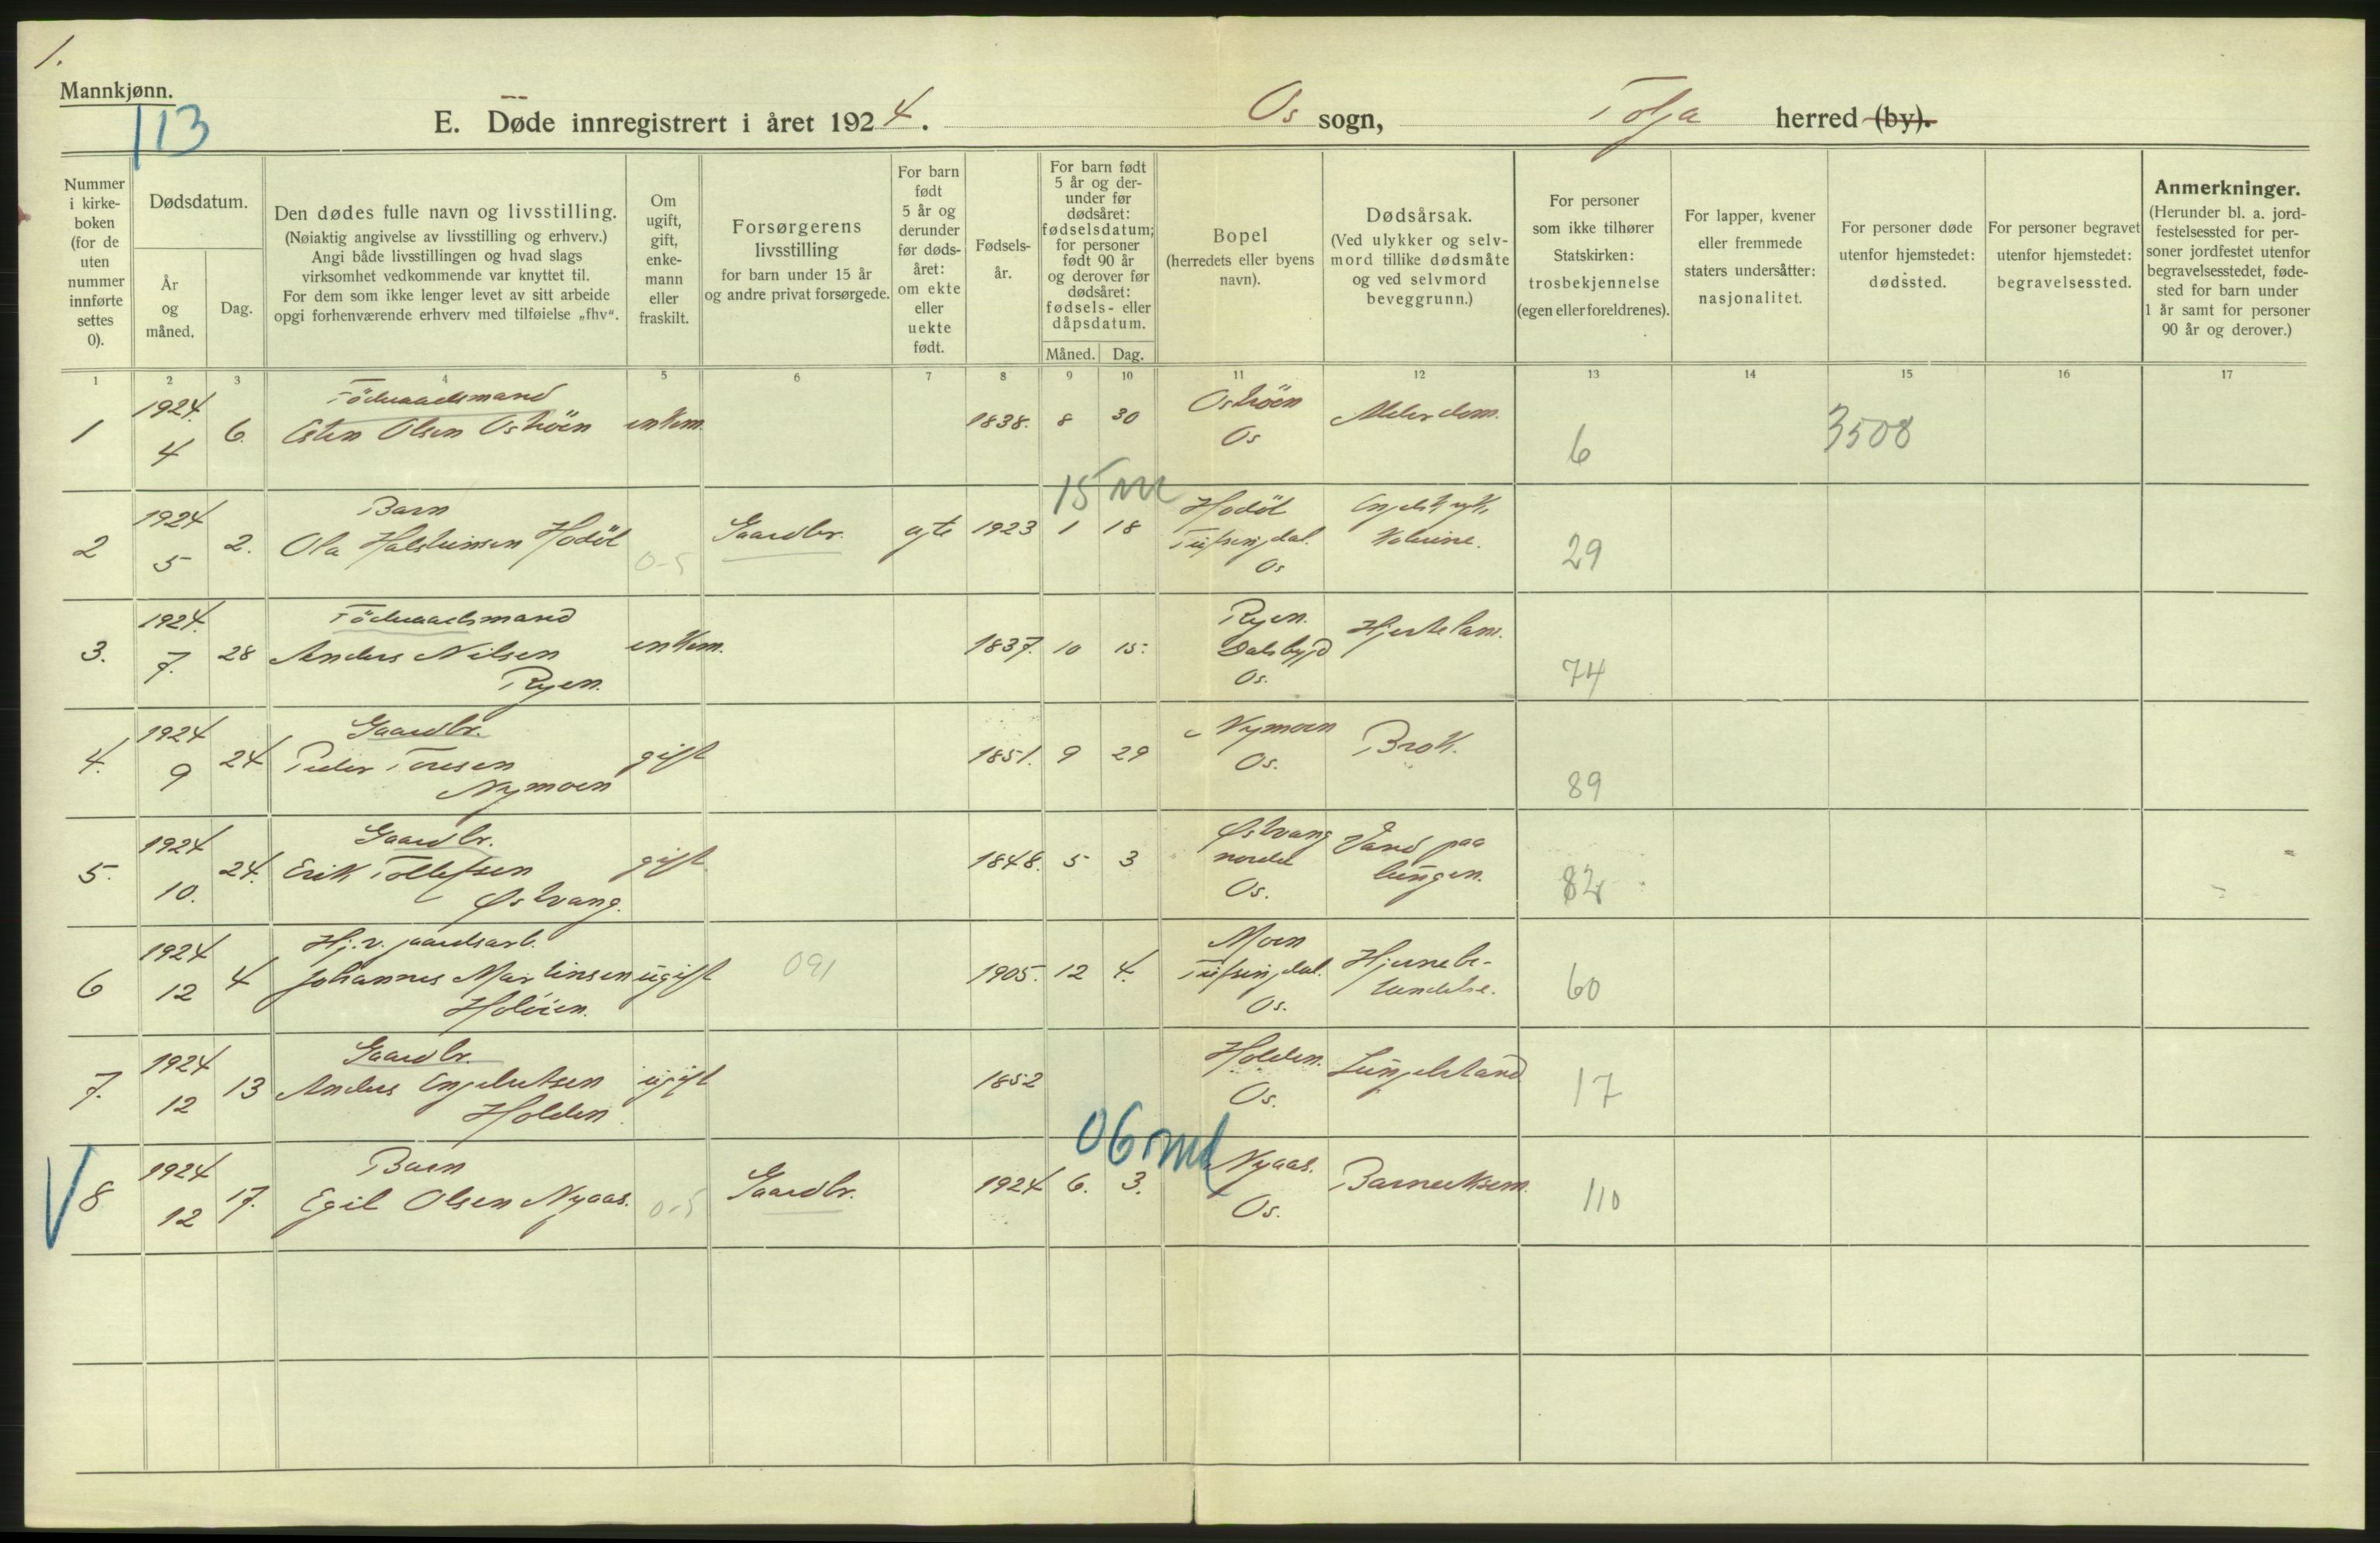 1.
Mannkjønn.
113
E. Døde innregistrert i året 1924. Os sogn, Tolga herred (by).
Nummer i kirke-boken (for de uten nummer innførte settes 0).
Dødsdatum.
År og måned.
Dag.
Den dødes fulle navn og livsstilling.
(Nøiaktig angivelse av livsstilling og erhverv.)
Angi både livsstillingen og hvad slags
virksomhet vedkommende var knyttet til.
For dem som ikke lenger levet av sitt arbeide
opgi forhenværende erhverv med tilføielse „fhv“.
Om ugift, gift, enke-mann eller fraskilt.
Forsørgerens
livsstilling
for barn under 15 år
og andre privat forsørgede.
For barn født 5 år og derunder før døds-året: om ekte eller uekte født.
Fødsels-år.
For barn født 5 år og der-under før dødsåret: fødselsdatum; for personer født 90 år og derover før dødsåret: fødsels- eller dåpsdatum.
Måned. Dag.
Bopel
(herredets eller byens
navn).
Dødsårsak.
(Ved ulykker og selv-
mord tillike dødsmåte
og ved selvmord
beveggrunn.)
For personer
som ikke tilhører
Statskirken:
trosbekjennelse
(egen eller foreldrenes).
For lapper, kvener
eller fremmede
staters undersåtter:
nasjonalitet.
For personer døde
utenfor hjemstedet:
dødssted.
For personer begravet
utenfor hjemstedet:
begravelsessted.
Anmerkninger.
(Herunder bl. a. jord-
festelsessted for per-
soner jordfestet utenfor
begravelsesstedet, føde-
sted for barn under
1 år samt for personer
90 år og derover.)
1 2 3 4 5 6 7 8 9 10 11 12 13 14 15 16 17
1 1924. 4 6. Föderaadsmand Osten Olsen Oshöen enkem. 1838. 8 30 Oshöen Os Alderdom. 6 3508
15 m
2 1924 5 2. Barn Ola Halsteinsen Hodöl 0-5 Gaardbr. egte 1923 1 18 Hodöl Tufsingdal. Os Engelsk syke 29
3. 1924. 7. 28 Föderaadsmand Anders Nilsen Ryen. enkem. 1837. 10 15. Ryen. Dalsbygd Os. Hjertelam. 74
4. 1924 9 24 Gaardbr. Peder Toresen Nymoen gift 1851. 9 29 Nymoen Os. Brok. 89
5. 1924 10. 24. Gaardbr. Erik Tollefsen Østvang. gift 1848. 5 3 Østvang nordel Os. Vand paa lungen. 82
6 1924 12 4 Hj. v. gaardsarb. Johannes Martinsen Holöien. ugift 091 1905. 12 4. Moen Tufsingdal. Os. Hjernebe-tendelse. 60
7. 1924 12 13 Gaardbr. Anders Engebretsen Holden. ugift 1852 Holden. Os. Lungebetænd 17
06 md
8 1924 12 17. Barn Egil Olsen Nyaas. 0-5 Gaardbr. 1924 6. 3. Nyaas. Os. Barneeksem. 110